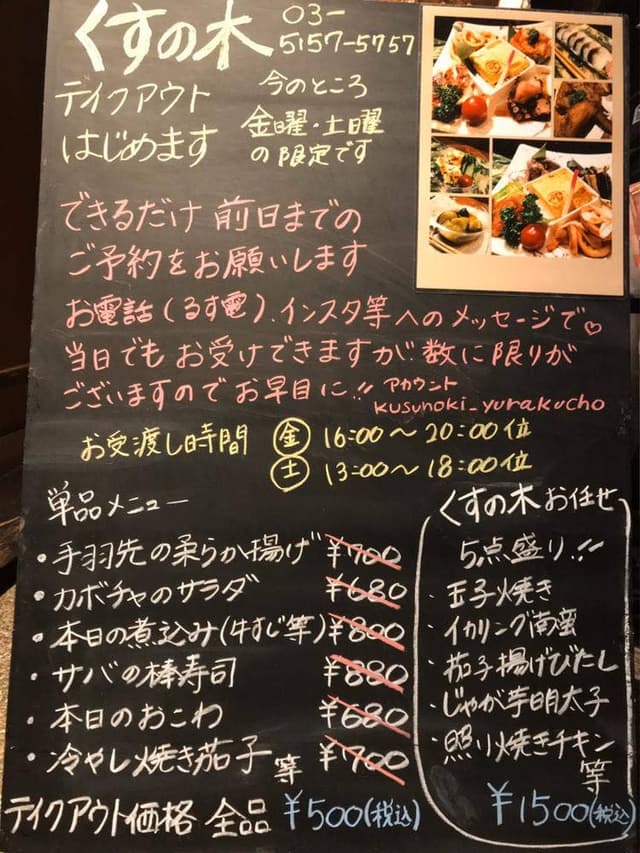 くすの木
03-5157-5757
テイクアウト
はじめます
今のところ
金曜・土曜
の限定です
できるだけ 前日までの
ご予約をお願いします
お電話(るす電)、インスタ等へのメッセージで♡
当日でもお受けできますが、数に限りが
ございますのでお早目に!!
アカウント
kusunoki_yurakucho
お受渡し時間 金 16:00〜20:00位
土 13:00〜18:00位
単品メニュー
・手羽先の柔らか揚げ ¥700
・カボチャのサラダ ¥680
・本日の煮込み(牛すじ等) ¥800
・サバの棒寿司 ¥880
・本日のおこわ ¥680
・冷やし焼き茄子 等 ¥700
テイクアウト価格 全品 ¥500(税込)
くすの木お任せ
5点盛り!!
・玉子焼き
・イカリング南蛮
・茄子揚げびたし
・じゃが芋明太子
・照り焼きチキン
等
¥1500(税込)